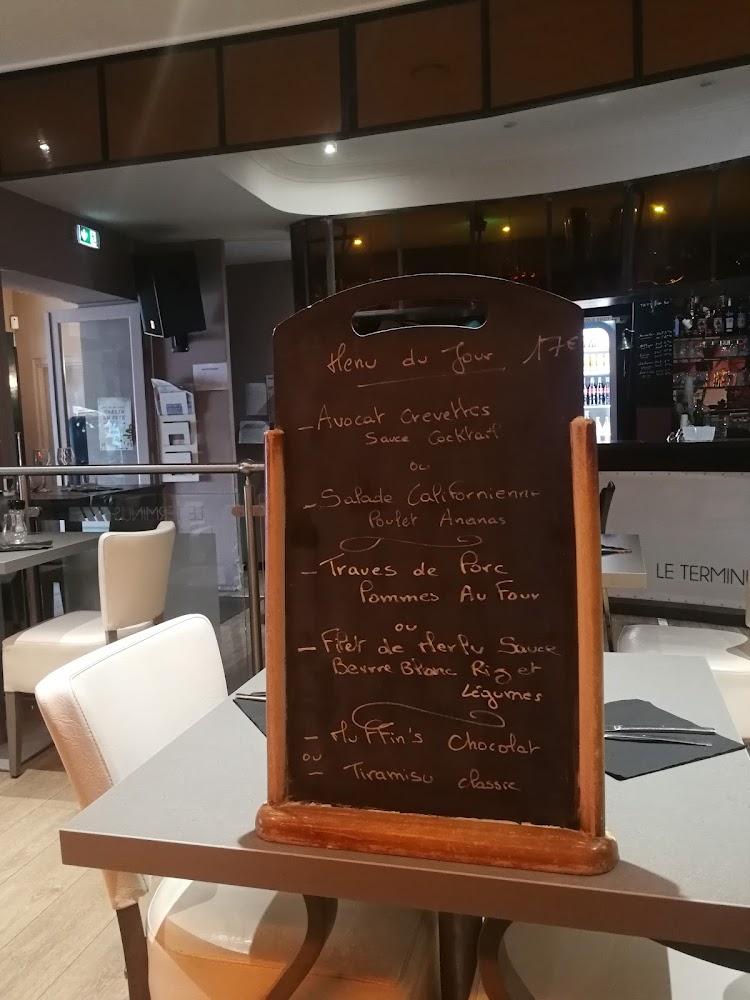 Menu du Jour 17€
- Avocat Crevettes
Sauce Cocktail
ou
- Salade Californienne
Poulet Ananas
- Traves de Porc
Pommes Au Four
ou
- Filet de Merlu Sauce
Beurre Blanc Riz et
Légumes
- Muffin's Chocolat
ou
- Tiramisu classic
LE TERMINU